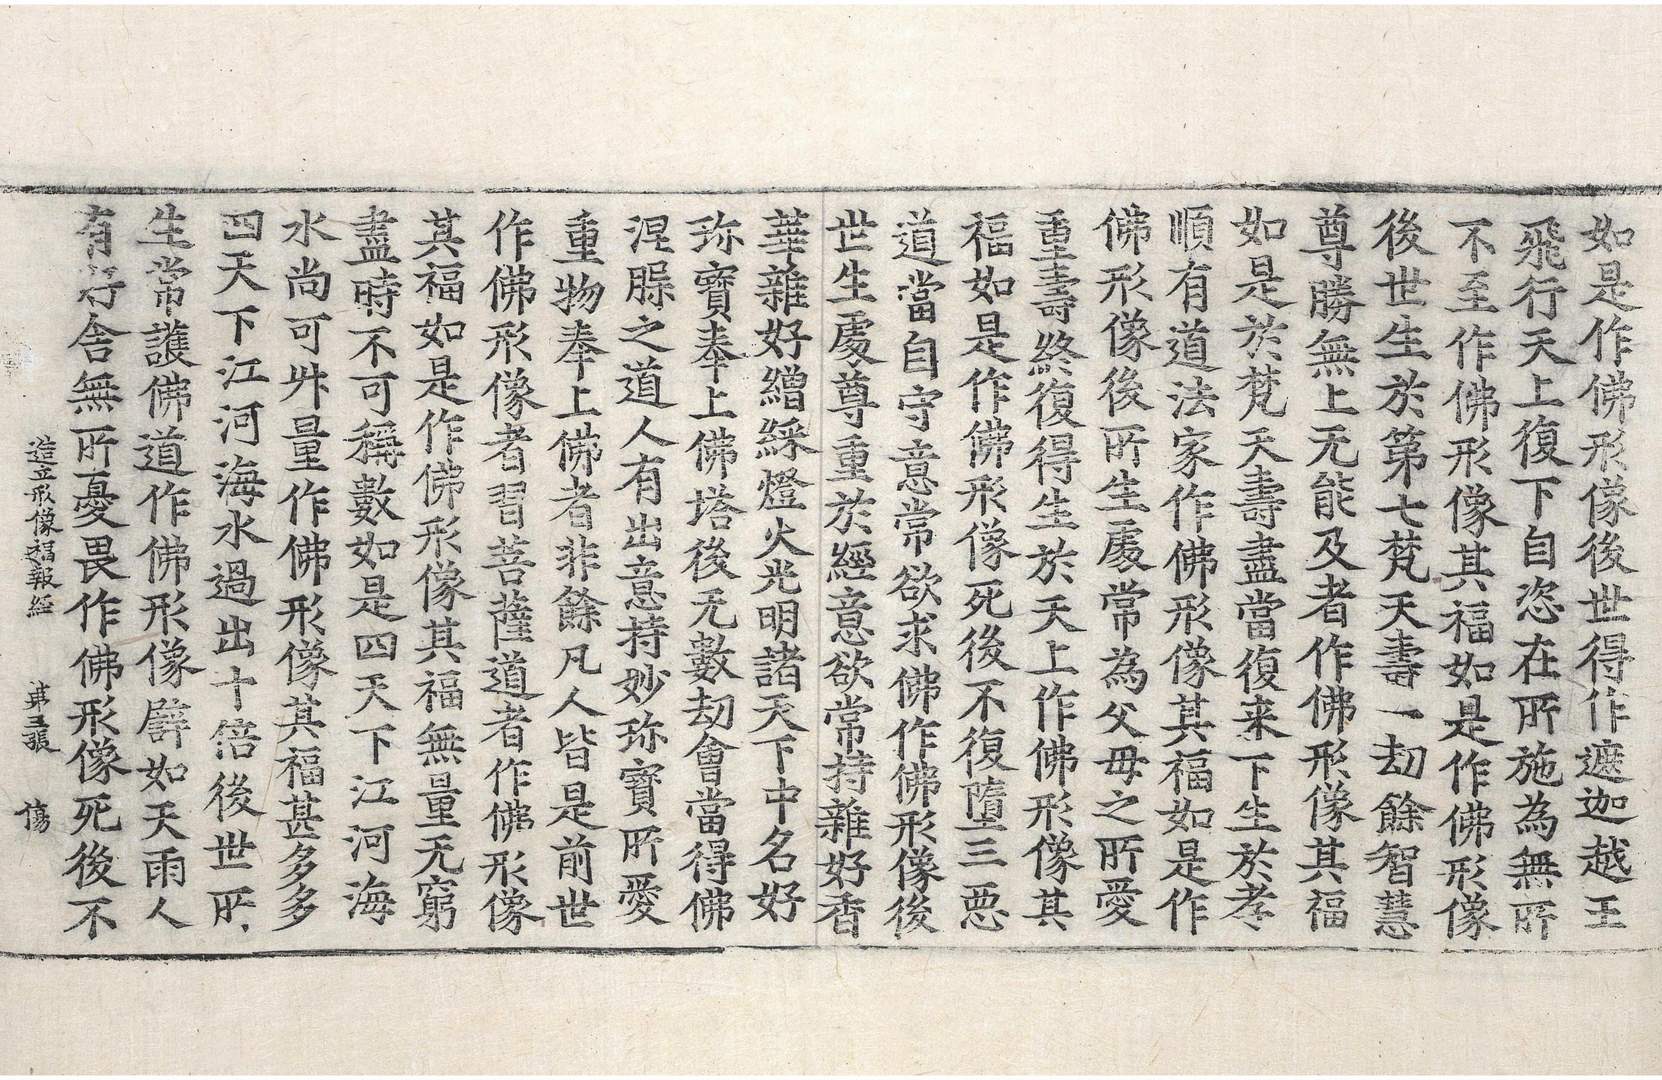 如是作佛形像後世得作遮迦越王
飛行天上復下自恣在所施為無所
不至作佛形像其福如是作佛形像
後世生於第七梵天壽一劫餘智慧
尊勝無上无能及者作佛形像其福
如是於梵天壽盡當復来下生於孝
順有道法家作佛形像其福如是作
佛形像後所生處常為父母之所愛
重壽終復得生於天上作佛形像其
福如是作佛形像死後不復墮三惡
道當自守意常欲求佛作佛形像後
世生處尊重於經意欲常持雜好香
華雜好繒綵燈火光明諸天下中名好
珎寳奉上佛塔後无數劫會當得佛
涅之道人有出意持妙珎寳所愛
重物奉上佛者非餘凡人皆是前世
作佛形像者習菩薩道者作佛形像
其福如是作佛形像其福無量无窮
盡時不可稱數如是四天下江河海
水尚可升量作佛形像其福甚多多
四天下江河海水過出十倍後世所
生常護佛道作佛形像譬如天雨人
有好舍無所憂畏作佛形像死後不
造立形像福報經 第五張 傷